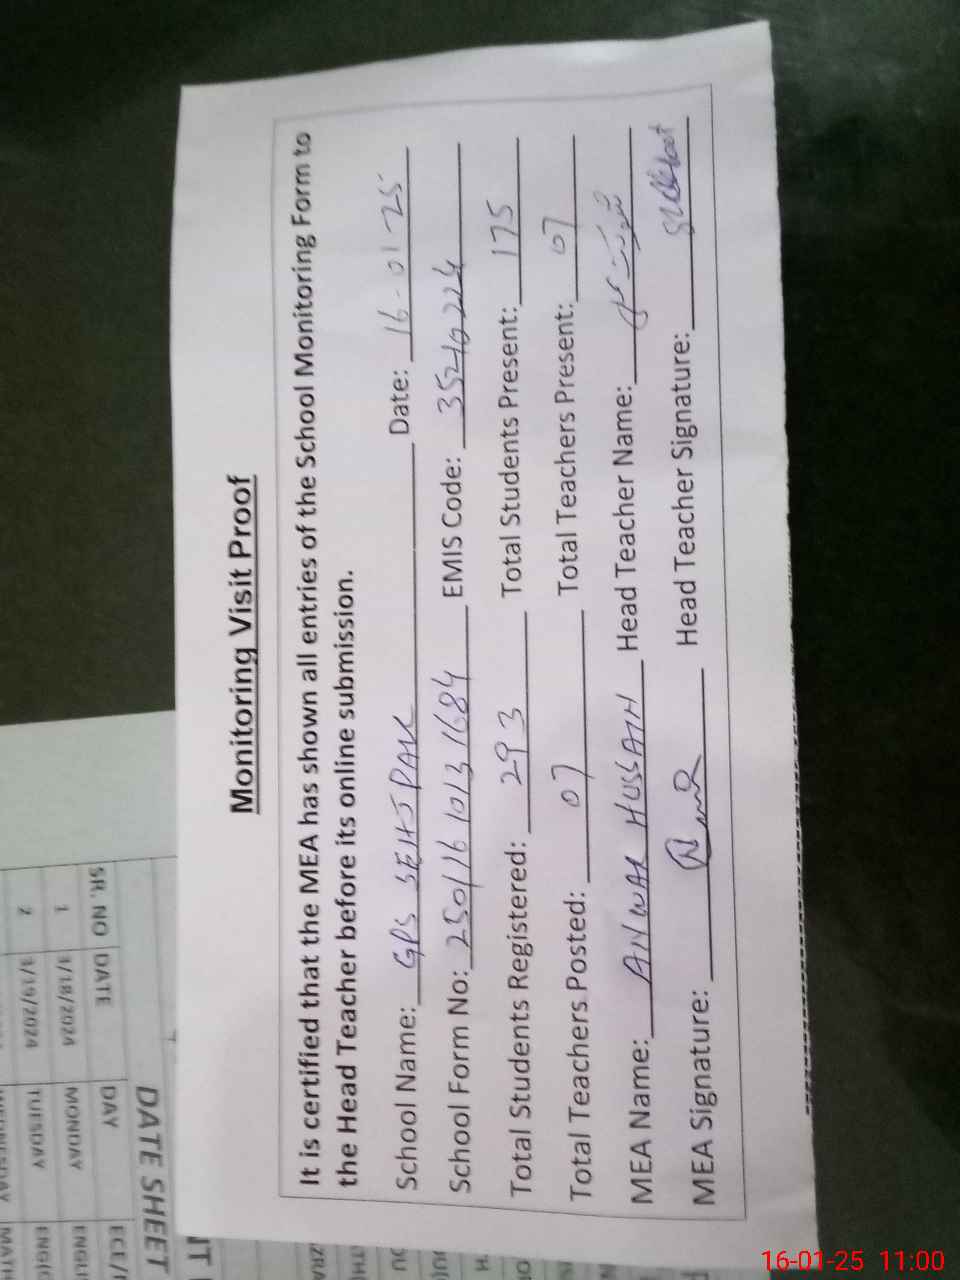 Monitoring Visit Proof
It is certified that the MEA has shown all entries of the School Monitoring Form to
the Head Teacher before its online submission.
School Name: GPS SEHJPAL Date: 16-01-25
School Form No: 25011610131684 EMIS Code: 35210224
Total Students Registered: 293 Total Students Present: 175
Total Teachers Posted: 07 Total Teachers Present: 07
MEA Name: ANWAR HUSSAIN Head Teacher Name:
MEA Signature: Head Teacher Signature:
DATE SHEET
SR. NO DATE DAY
1 3/18/2024 MONDAY
2 3/19/2024 TUESDAY
16-01-25 11:00